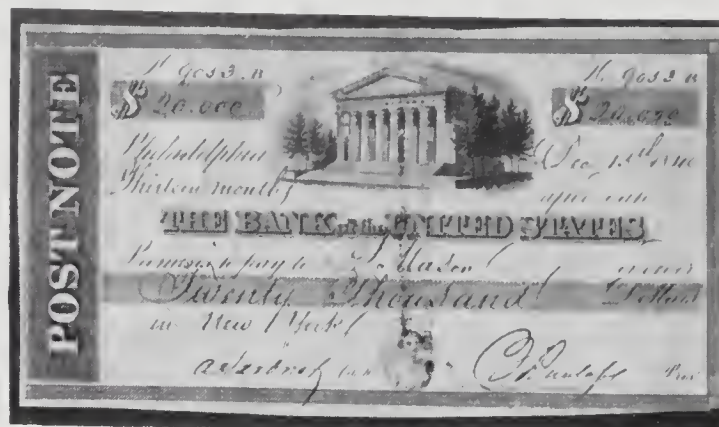 POST NOTE
$ 20.000 $ 20.000
Philadelphia Dec.
Thirteen months after date
THE BANK of the UNITED STATES
Promise to pay to S. Mason or order
Twenty Thousand Dollars
in New York
T. Dunlap Pres